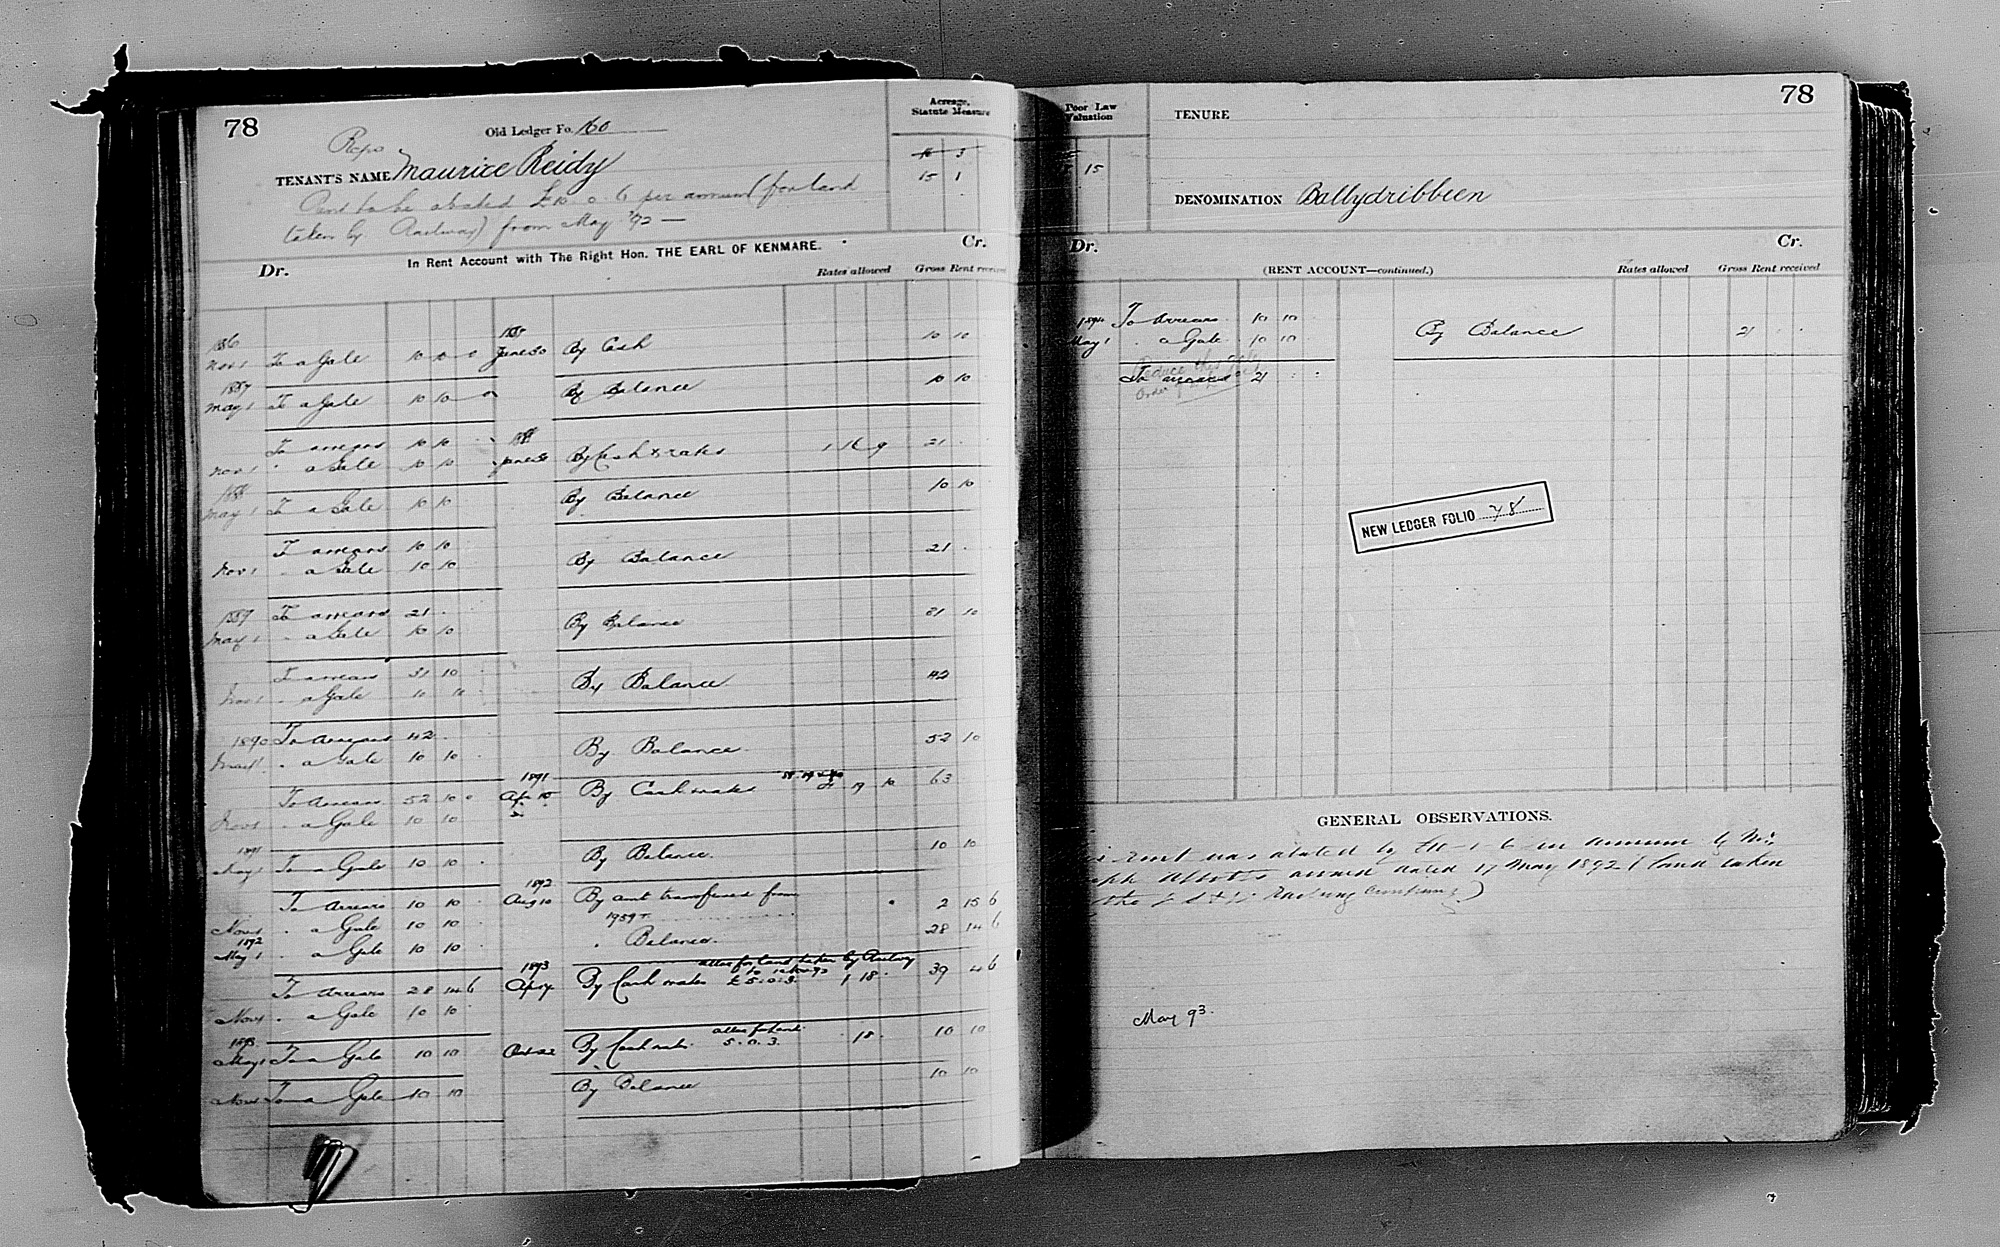 78
Old Ledger Fo. 160
Acreage,
Statute Measure
Reps
TENANT'S NAME Maurice Reidy
15 1
Rent to be abated £10. 0. 6 per annum (for land
taken by Railway) from May '92 —
In Rent Account with The Right Hon. THE EARL OF KENMARE.
Dr. Cr.
Rates allowed Gross Rent received
1887
Nov 1 To a Gale June 30 By Cash 10 10
1887
May 1 To a Gale 10 10 By Balance 10 10
To arrears 10 10
Nov 1 " a Gale 10 10 June 30 By Cash & rates 1 16 9 21
1888
May 1 To a Gale 10 10 By Balance 10 10
To arrears 10 10
Nov 1 " a Gale 10 10 By Balance 21
1889 To arrears 21
May 1 " a Gale 10 10 By Balance 31 10
To arrears 31 10
Nov 1 " a Gale 10 10 By Balance 42
1890 To Arrears 42
May 1 " a Gale 10 10 By Balance 52 10
1891
To Arrears 52 10 0 Apr 15 By Cash & rates 19 10 63
Nov 1 " a Gale 10 10
1891
May 1 To a Gale 10 10 By Balance 10 10
1892
To Arrears 10 10 Aug 10 By amt transferred from 2 15 6
Nov 1 " a Gale 10 10 1959
1892
May 1 " a Gale 10 10 " Balance 28 14 6
1893 allce for land taken by Railway
To Arrears 28 14 6 Apr 17 By Cash & rates £5.0.3. 1 18 39 4 6
Nov 1 " a Gale 10 10
1893 allce for land
May 1 To a Gale 10 10 Oct 22 By Cash & rates 5.0.3. 18 10 10
Nov 1 To a Gale 10 10 By Balance 10 10
78
Poor Law
Valuation
15
TENURE
DENOMINATION Ballydribbeen
Dr. Cr.
(RENT ACCOUNT—continued.)
Rates allowed Gross Rent received
1894 To Arrears 10 10
May 1 " a Gale 10 10 By Balance 21
To arrears 21
NEW LEDGER FOLIO 78
GENERAL OBSERVATIONS.
rent was abated by £10-1-6 per annum by Mr
Abbott's award dated 17 May 1892 (land taken
the Railway Company)
May 93.